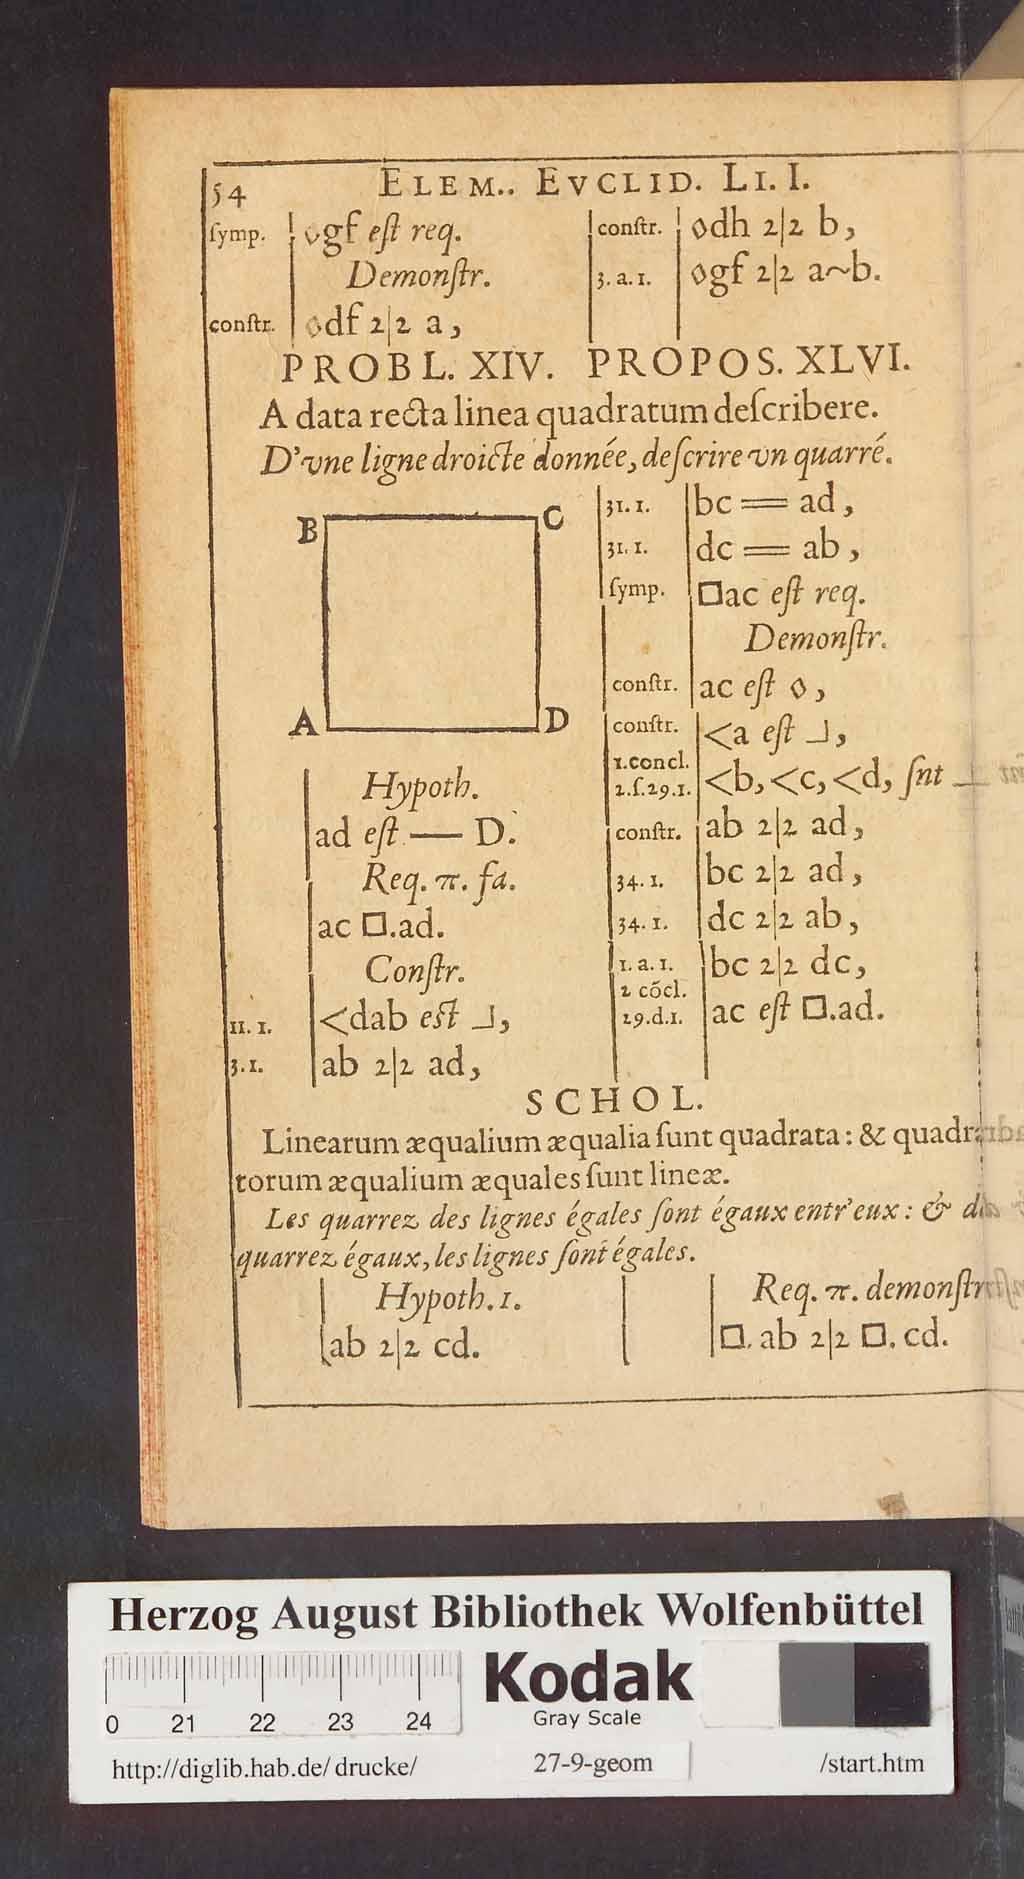 54 ELEM.. EVCLID. LI. I.
ſymp. ◊gf eſt req.
Demonſtr.
conſtr. ◊df 2|2 a,
conſtr. ◊dh 2|2 b,
3. a. 1. ◊gf 2|2 a~b.
PROBL. XIV. PROPOS. XLVI.
A data recta linea quadratum deſcribere.
D'vne ligne droicte donnée, deſcrire vn quarré.
B C
A D
Hypoth.
ad eſt — D.
Req. π. fa.
ac □.ad.
Conſtr.
11. 1. <dab eſt ⅃,
3. 1. ab 2|2 ad,
31. 1. bc == ad,
31. 1. dc == ab,
ſymp. □ac eſt req.
Demonſtr.
conſtr. ac eſt ◊,
conſtr. <a eſt ⅃,
1.concl.
2.ſ.29.1. <b, <c, <d, ſnt
conſtr. ab 2|2 ad,
34. 1. bc 2|2 ad,
34. 1. dc 2|2 ab,
1. a. 1. bc 2|2 dc,
2 cõcl.
29.d.1. ac eſt □.ad.
SCHOL.
Linearum æqualium æqualia ſunt quadrata: & quadra
torum æqualium æquales ſunt lineæ.
Les quarrez des lignes égales ſont égaux entr'eux: &
quarrez égaux, les lignes ſont égales.
Hypoth. 1.
ab 2|2 cd.
Req. π. demonſtr
□. ab 2|2 □. cd.
Herzog August Bibliothek Wolfenbüttel
Kodak
Gray Scale
0 21 22 23 24
http://diglib.hab.de/drucke/ 27-9-geom /start.htm